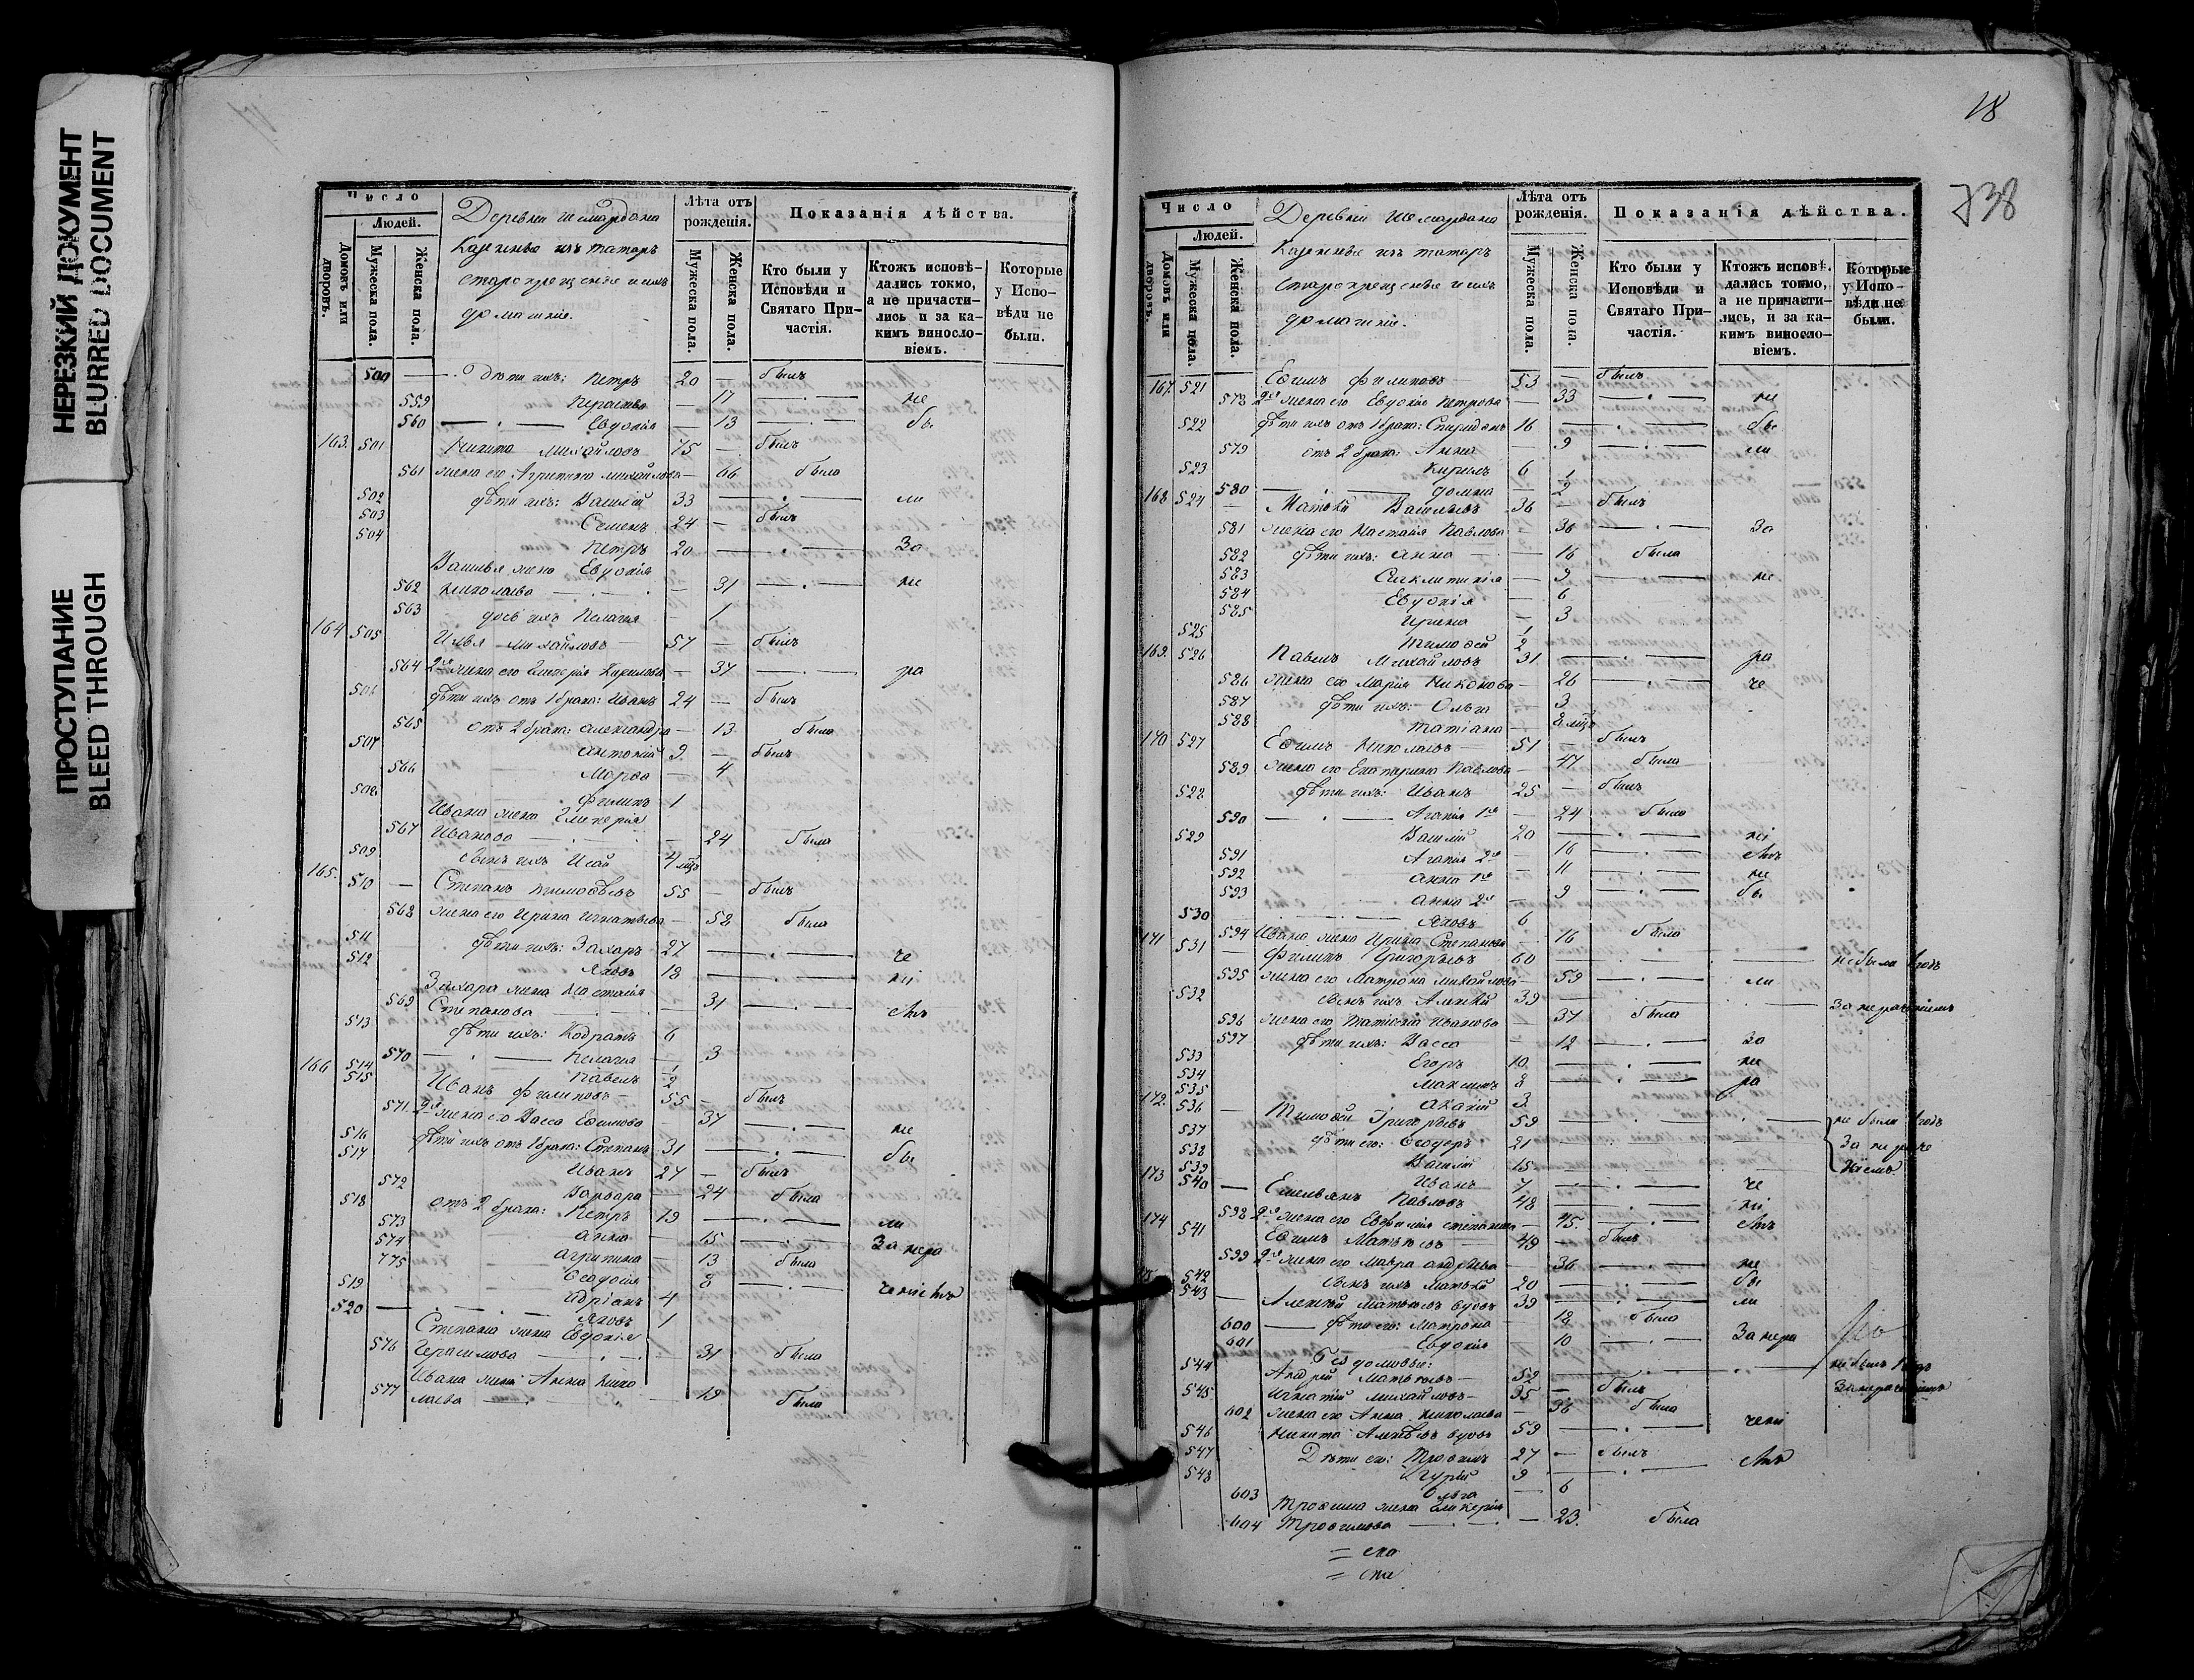 НЕРЕЗКИЙ ДОКУМЕНТ
BLURRED DOCUMENT
ПРОСТУПАНИЕ
BLEED THROUGH
Число
Людей.
Домовъ или дворовъ.
Мужеска пола.
Женска пола.
Деревни Шемардана
Казенные изъ татаръ
старокрещеные и ихъ
домашніе.
Лѣта отъ рожденія.
Мужеска пола.
Женска пола.
Показанія дѣйства.
Кто были у Исповѣди и Святаго Причастія.
Ктожъ исповѣдались токмо, а не причастились и за какимъ винословіемъ.
Которые у Исповѣди не были.
500 Дѣти ихъ: Петръ 20 — былъ
559 — 17 не
560 Евдокія — 13 бы
163. 501 Никита Михайловъ 75 — былъ
561 жена его Агрипина Михайлова — 66 была
502 дѣти ихъ: Василій 33 ли
503 Семенъ 24 — былъ
504 Петръ 20 За
Василья жена Евдокія
562 Николаева — 31 не
563 дочь ихъ Пелагія — 1
164 505 Илья Михайловъ 57 — былъ
564 2я жена его Гликерія Кирилова — 37 ра
506 дѣти ихъ отъ 1 брака: Иванъ 24 — былъ
565 отъ 2 брака: Александра — 13 была
507 Антоній 9 — былъ
566 Марѳа — 4
508 Филипъ 1
Ивана жена Гликерія
567 Иванова — 24 была
509 сынъ ихъ Исай 4 мѣц
165. 510 — Степанъ Тимоѳѣевъ 55 — былъ
568 жена его Ирина Игнатьева — 58 была
511 дѣти ихъ: Захаръ 27 че
512 Яковъ 18 ні
Захара жена Настасія
569 Степанова — 31 емъ
513 дѣти ихъ: Кодратъ 6
570 Пелагія — 3
514 Павелъ 1/2
166 515 Иванъ Филиповъ 55 — былъ
571. 2я жена его Васса Ефимова — 37 не
516 дѣти ихъ отъ 1 брака: Степанъ 31 бы
517 Иванъ 27 — былъ
572 Варвара — 24 была
518 отъ 2 брака: Петръ 19 ли
573 Анна — 15 За нера
574 Агрипина — 13 была
775 Ѳеодосія — 8 ченіемъ
519 Адріанъ 4
520 Яковъ 1
Степана жена Евдокія
576 Герасимова — 31 была
Ивана жена Анна Нико
577 лаева — 19 была
18
738
Число
Людей.
Домовъ или дворовъ.
Мужеска пола.
Женска пола.
Деревни Шемардана
Казенные изъ татаръ
старокрещеные и ихъ
домашніе.
Лѣта отъ рожденія.
Мужеска пола.
Женска пола.
Показанія дѣйства.
Кто были у Исповѣди и Святаго Причастія.
Ктожъ исповѣдались токмо, а не причастились, и за какимъ винословіемъ.
Которые у Исповѣди не были.
167. 521 Ефимъ Филиповъ 53 — былъ
578 2я жена его Евдокія Петрова — 33 не
522 дѣти ихъ отъ 1 брака: Спиридонъ 16 бы
579 отъ 2 брака: Анна — 9 ли
523 Кирилъ 6
580 Домна — 1/2
168 524 Матвѣй Васильевъ 36 — былъ
581 жена его Настасія Павлова — 36 За
582 дѣти ихъ: Анна — 16 была
583 Сигклитикія — 9 не
584 Евдокія — 6
585 Ирина — 3
525 Тимоѳей 1/2
169. 526 Павелъ Михайловъ 31 ра
586 жена его Марія Никонова — 26 че
587 дѣти ихъ: Ольга — 3
588 Татіана — 8 мѣц
170 527 Ефимъ Николаевъ 51 — былъ
589 жена его Екатерина Павлова — 47 была
528 дѣти ихъ: Иванъ 25 — былъ
590 Агапія 1я — 24 была
529 Василій 20 ні
591 Агапія 2я — 16 емъ
592 Анна 1я — 11 не
593 Анна 2я — 9 бы
530 Яковъ 6
594 Ивана жена Ирина Степанова — 16 была
171 531 Филипъ Григорьевъ 60 не были 1 годъ
595 жена его Матрона Михайлова — 59 ли
532 сынъ ихъ Алексѣй 39 За нераченіемъ
596 жена его Татіана Иванова — 37 была
597 дѣти ихъ: Васса — 12 За
533 Егоръ 10 не
534 Максимъ 8 ра
535 Акакій 3
172. 536 — Тимоѳей Григорьевъ 59 не были 1 годъ
537 дѣти его: Ѳеодоръ 21 За нераче
538 Василій 15 ніемъ
539 Иванъ 7 че
173 540 — Емельянъ Павловъ 48 ні
598 2я жена его Евфимія Степанова — 45 емъ
174 541 Ефимъ Матвѣевъ 49 — былъ
599 2я жена его Мавра Андреева — 36 не
542 сынъ ихъ Матвѣй 20 бы
543 — Алексѣй Матвѣевъ вдовъ 39 ли
600 дѣти его: Матрона — 18 была
601 Евдокія — 10 За нера
Бездомовые:
544 Андрей Матвѣевъ 52 не былъ 1 годъ
545 Игнатій Михайловъ 35 — былъ За нераченіемъ
602 жена его Анна Николаева — 36 была
546 Никита Алексѣевъ вдовъ 59 чені
547 Дѣти его: Трофимъ 27 — былъ
548 Гурій 9 емъ
603 Ольга — 6
Трофима жена Гликерія
604 Трофимова — 23. была